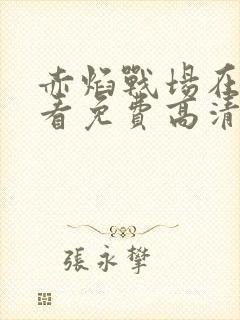 赤焰戰場在
看免費高清
張永攀